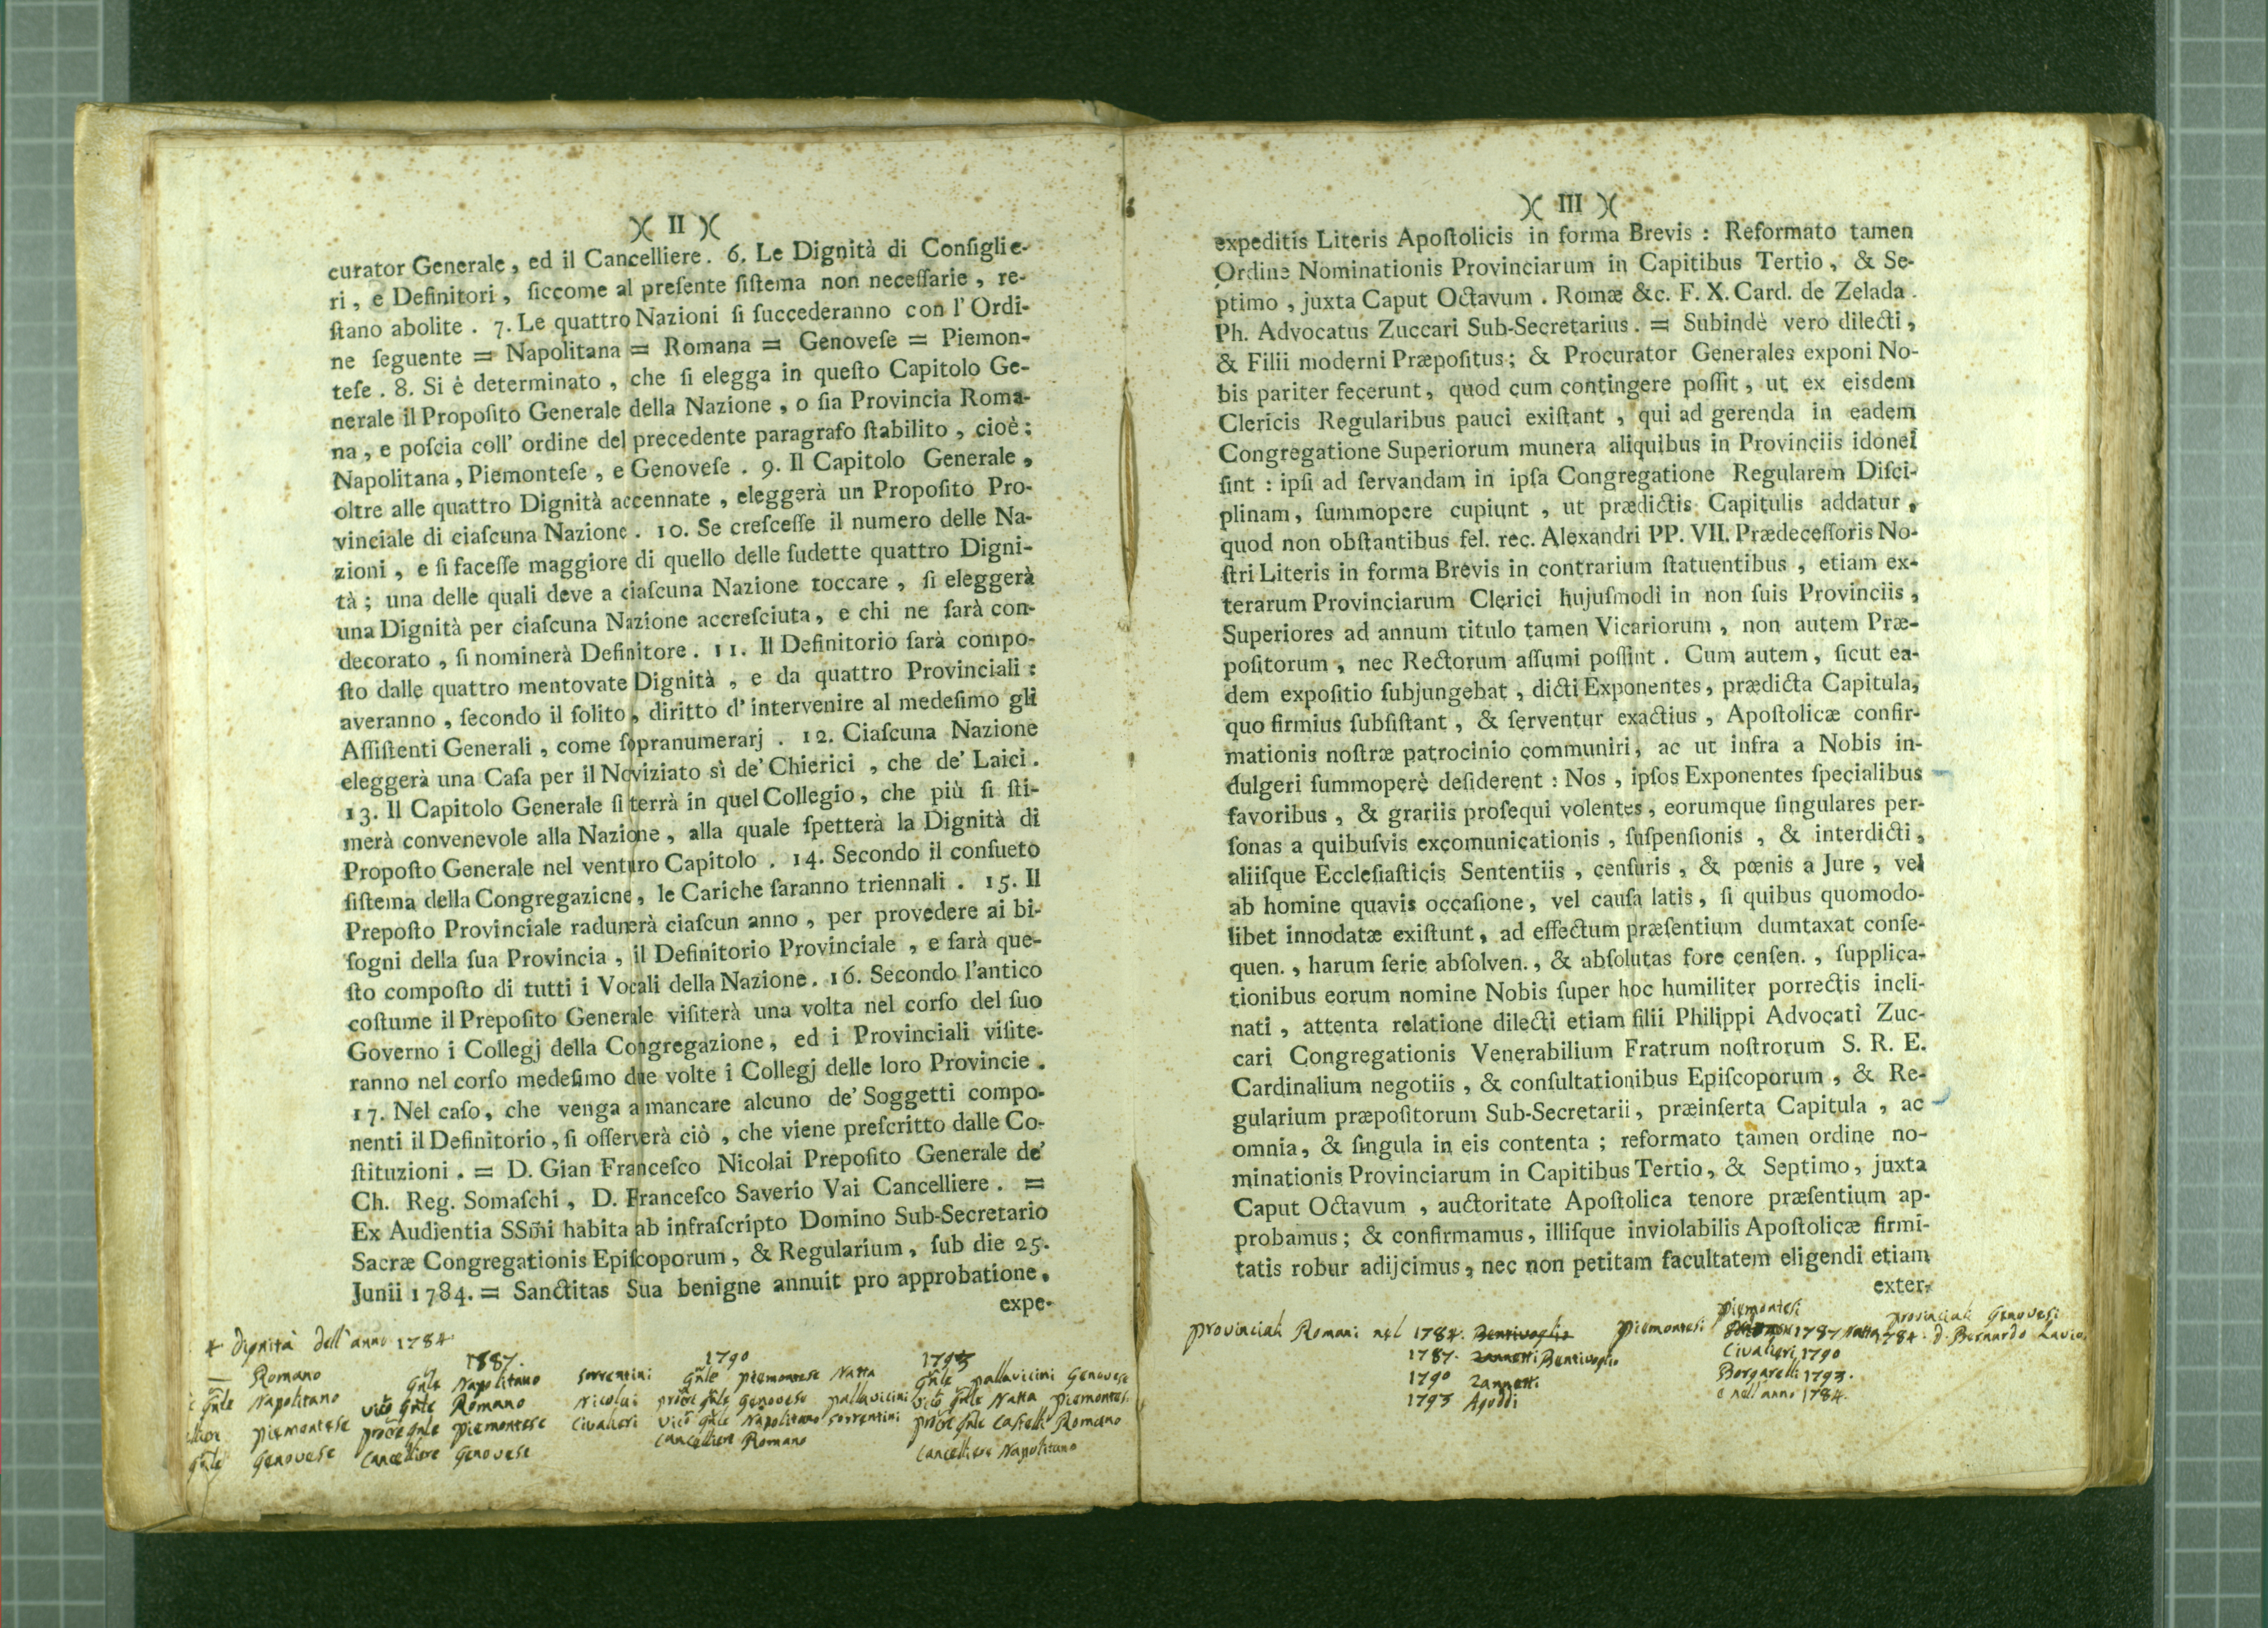 )( II )(
curator Generale, ed il Cancelliere. 6. Le Dignità di Conſiglie-
ri, e Definitori, ſiccome al preſente ſiſtema non neceſſarie, re-
ſtano abolite. 7. Le quattro Nazioni ſi ſuccederanno con l'Ordi-
ne ſeguente = Napolitana = Romana = Genoveſe = Piemon-
teſe. 8. Si è determinato, che ſi elegga in queſto Capitolo Ge-
nerale il Propoſito Generale della Nazione, o ſia Provincia Roma-
na, e poſcia coll' ordine del precedente paragrafo ſtabilito, cioè:
Napolitana, Piemonteſe, e Genoveſe. 9. Il Capitolo Generale,
oltre alle quattro Dignità accennate, eleggerà un Propoſito Pro-
vinciale di ciaſcuna Nazione. 10. Se creſceſſe il numero delle Na-
zioni, e ſi faceſſe maggiore di quello delle ſudette quattro Digni-
tà; una delle quali deve a ciaſcuna Nazione toccare, ſi eleggerà
una Dignità per ciaſcuna Nazione accreſciuta, e chi ne ſarà con-
decorato, ſi nominerà Definitore. 11. Il Definitorio ſarà compo-
ſto dalle quattro mentovate Dignità, e da quattro Provinciali:
averanno, ſecondo il ſolito, diritto d'intervenire al medeſimo gli
Aſſiſtenti Generali, come ſopranumerarj. 12. Ciaſcuna Nazione
eleggerà una Caſa per il Noviziato sì de' Chierici, che de' Laici.
13. Il Capitolo Generale ſi terrà in quel Collegio, che più ſi ſti-
merà convenevole alla Nazione, alla quale ſpetterà la Dignità di
Propoſto Generale nel venturo Capitolo. 14. Secondo il conſueto
ſiſtema della Congregazione, le Cariche ſaranno triennali. 15. Il
Prepoſto Provinciale radunerà ciaſcun anno, per provedere ai bi-
ſogni della ſua Provincia, il Definitorio Provinciale, e ſarà que-
ſto compoſto di tutti i Vocali della Nazione. 16. Secondo l'antico
coſtume il Prepoſito Generale viſiterà una volta nel corſo del ſuo
Governo i Collegj della Congregazione, ed i Provinciali viſite-
ranno nel corſo medeſimo due volte i Collegj delle loro Provincie.
17. Nel caſo, che venga a mancare alcuno de' Soggetti compo-
nenti il Definitorio, ſi oſſerverà ciò, che viene preſcritto dalle Co-
ſtituzioni. = D. Gian Franceſco Nicolai Prepoſito Generale de'
Ch. Reg. Somaſchi, D. Franceſco Saverio Vai Cancelliere. =
Ex Audientia SSm̃i habita ab infraſcripto Domino Sub-Secretario
Sacræ Congregationis Epiſcoporum, & Regularium, ſub die 25.
Junii 1784. = Sanctitas Sua benigne annuit pro approbatione,
expe-
dignità dell'anno 1784
Romano
Gñle Napolitano
Piemontese
Gñle Genovese
1787.
Gñle Napolitano Sorrentini
vicõ Gñle Romano Nicolai
procẽ gñle Piemontese Civalieri
Cancelliere Genovese
1790
Gñle Piemontese Natta
procẽ gñle Genovese pallavicini
vicõ Gñle Napolitano Sorrentini
Cancelliere Romano
1793
Gñle pallavicini Genovese
vicõ Gñle Natta Piemontese
procẽ gñle Castelli Romano
Cancelliere Napolitano
)( III )(
expeditis Literis Apoſtolicis in forma Brevis: Reformato tamen
Ordine Nominationis Provinciarum in Capitibus Tertio, & Se-
ptimo, juxta Caput Octavum. Romæ &c. F. X. Card. de Zelada.
Ph. Advocatus Zuccari Sub-Secretarius. = Subindè vero dilecti,
& Filii moderni Præpoſitus; & Procurator Generales exponi No-
bis pariter fecerunt, quod cum contingere poſſit, ut ex eisdem
Clericis Regularibus pauci exiſtant, qui ad gerenda in eadem
Congregatione Superiorum munera aliquibus in Provinciis idonei
ſint: ipſi ad ſervandam in ipſa Congregatione Regularem Diſci-
plinam, ſummopere cupiunt, ut prædictis Capitulis addatur,
quod non obſtantibus fel. rec. Alexandri PP. VII. Prædeceſſoris No-
ſtri Literis in forma Brevis in contrarium ſtatuentibus, etiam ex-
terarum Provinciarum Clerici hujuſmodi in non ſuis Provinciis,
Superiores ad annum titulo tamen Vicariorum, non autem Præ-
poſitorum, nec Rectorum aſſumi poſſint. Cum autem, ſicut ea-
dem expoſitio ſubjungebat, dicti Exponentes, prædicta Capitula,
quo firmius ſubſiſtant, & ſerventur exactius, Apoſtolicæ confir-
mationis noſtræ patrocinio communiri, ac ut infra a Nobis in-
dulgeri ſummoperè deſiderent: Nos, ipſos Exponentes ſpecialibus
favoribus, & grariis proſequi volentes, eorumque ſingulares per-
ſonas a quibuſvis excomunicationis, ſuſpenſionis, & interdicti,
aliiſque Eccleſiaſticis Sententiis, cenſuris, & pœnis a Jure, vel
ab homine quavis occaſione, vel cauſa latis, ſi quibus quomodo-
libet innodatæ exiſtunt, ad effectum præſentium dumtaxat conſe-
quen., harum ſerie abſolven., & abſolutas fore cenſen., ſupplica-
tionibus eorum nomine Nobis ſuper hoc humiliter porrectis incli-
nati, attenta relatione dilecti etiam filii Philippi Advocati Zuc-
cari Congregationis Venerabilium Fratrum noſtrorum S. R. E.
Cardinalium negotiis, & conſultationibus Epiſcoporum, & Re-
gularium præpoſitorum Sub-Secretarii, præinſerta Capitula, ac
omnia, & ſingula in eis contenta; reformato tamen ordine no-
minationis Provinciarum in Capitibus Tertio, & Septimo, juxta
Caput Octavum, auctoritate Apoſtolica tenore præſentium ap-
probamus; & confirmamus, illiſque inviolabilis Apoſtolicæ firmi-
tatis robur adijcimus, nec non petitam facultatem eligendi etiam
exter-
provinciali Romani nel 1784. Bentivoglio
1787. Zannetti Bentivoglio
1790 Zannetti
1793 Agoddi
Piemontesi
Piemontesi 1787 Natta
Civalieri 1790
Borgarelli 1793.
e nell'anno 1784.
provinciali Genovesi
1784. d. Bernardo